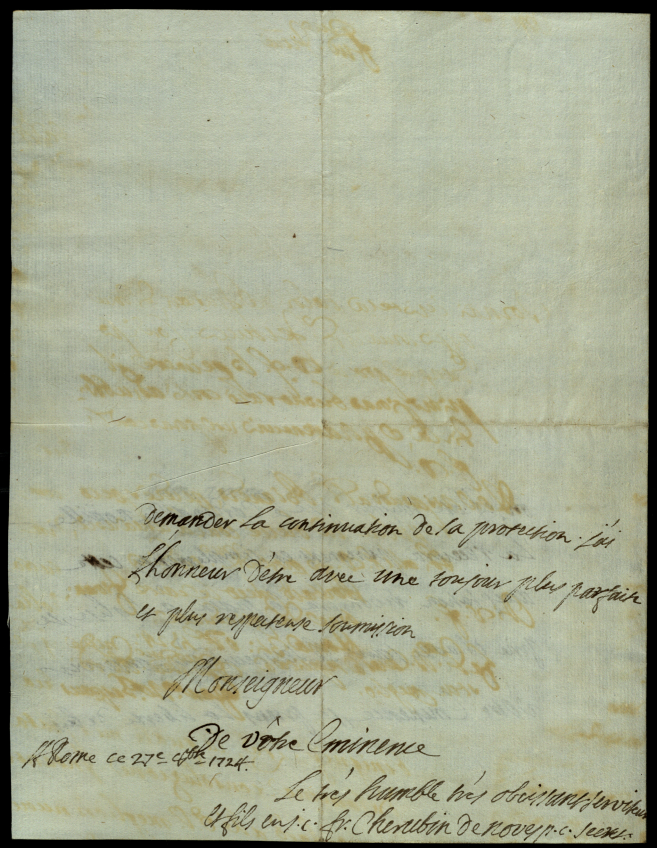 demander la continuation de sa protection. J'ai
L'honneur D'etre avec une toujour plus parfaite
et plus respecteuse soumission
Monseigneur
De vôtre Eminence
A Rome ce 27e 1724.
Le très humble très obeissant serviteur
et fils en j. c. fr. Cherubin de noves p. c. secret.